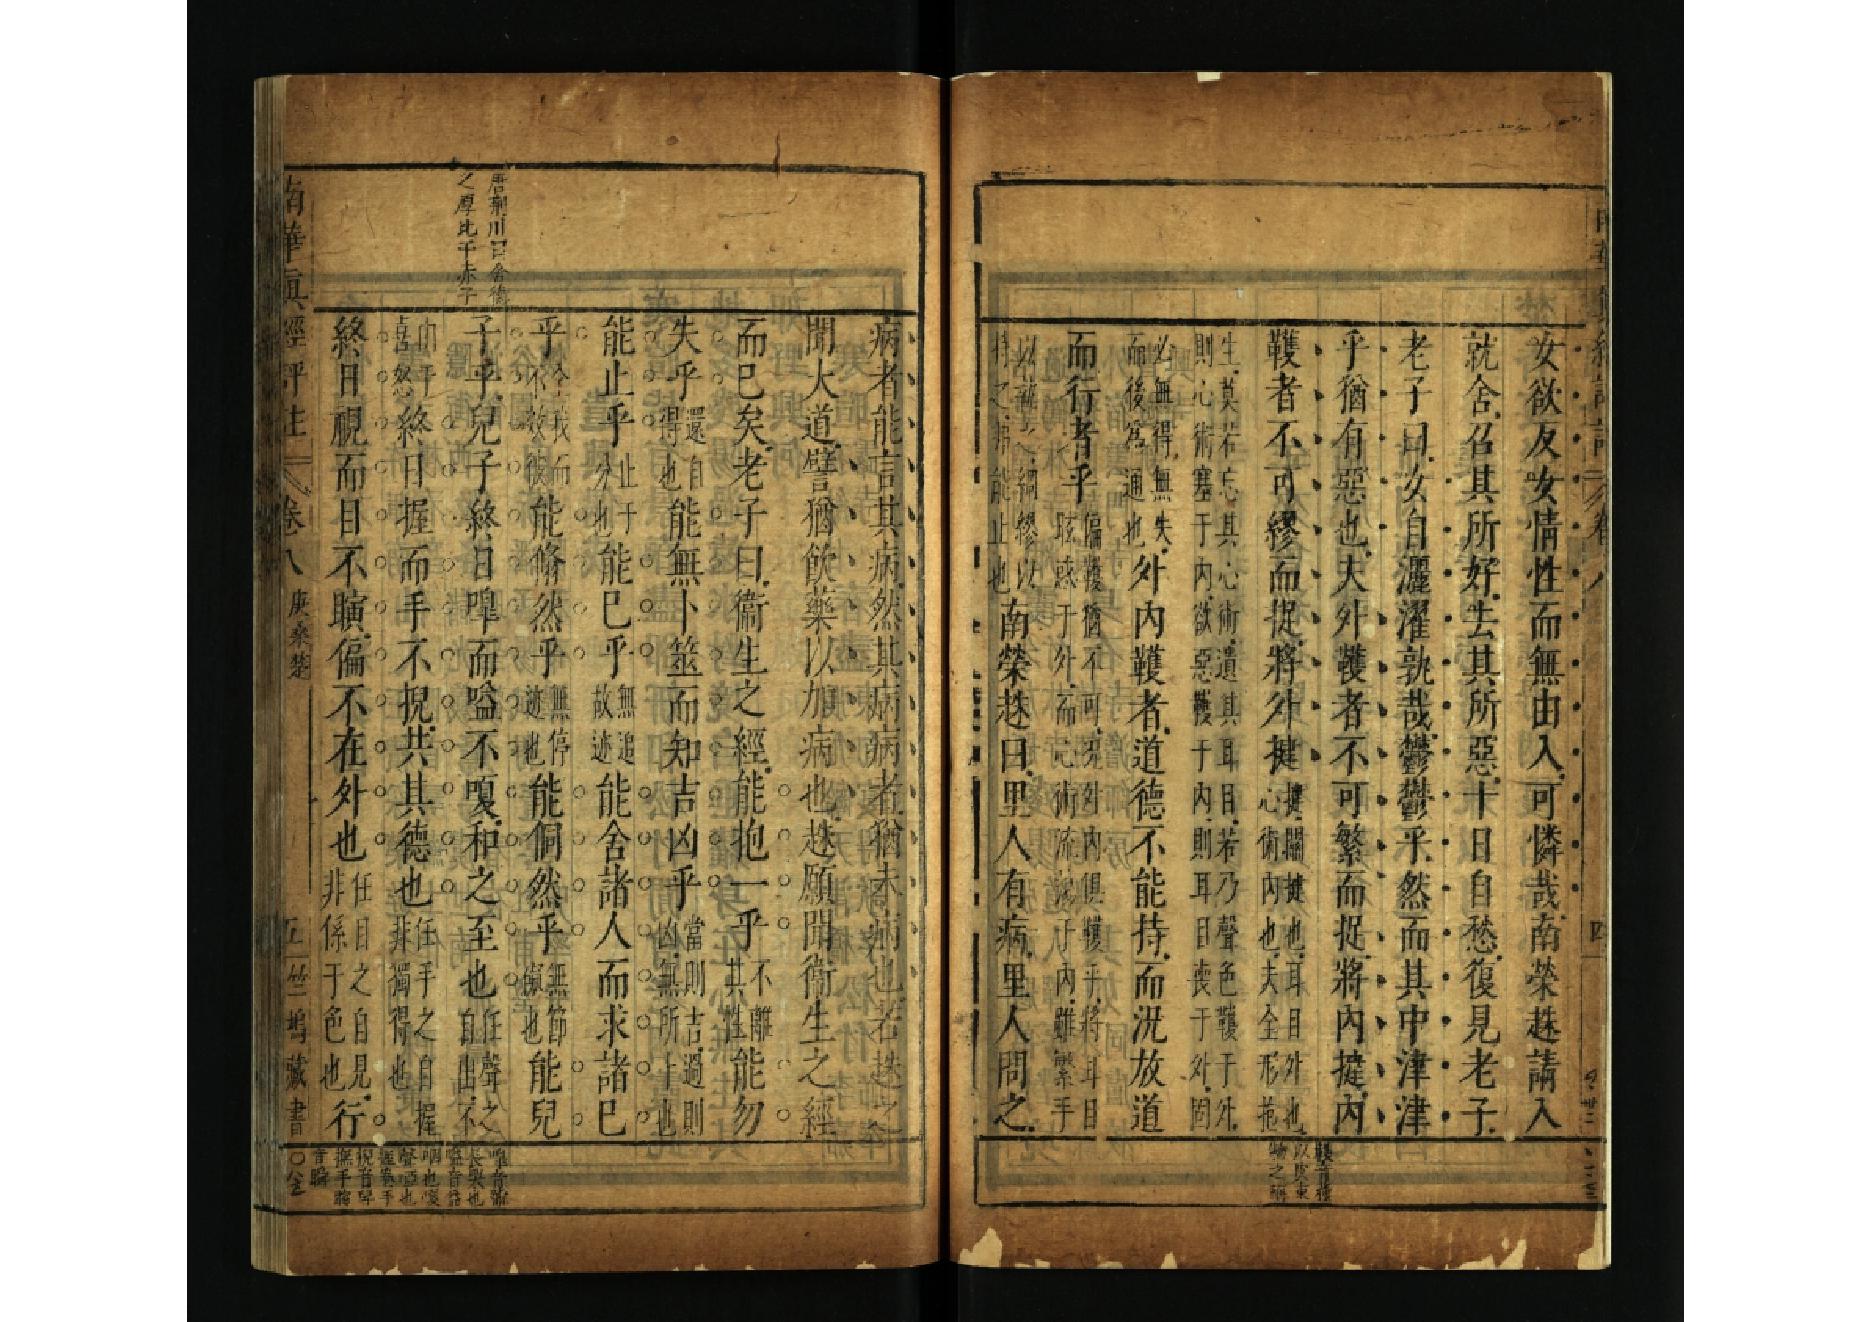 女欲反女情性而無由入可憐哉南榮趎請入
就舍召其所好去其所惡十日自愁復見老子
老子曰女自灑濯孰哉鬱鬱乎然而其中津津
乎猶有惡也夫外韄者不可繁而捉將內揵內
韄者不可繆而捉將外揵揵關揵也耳目外也心術內也夫全形抱
生莫若忘其心術遺其耳目若乃聲色韄于外
則心術塞于內欲惡韄于內則耳目喪于外固
必無得無失而後為通也外內韄者道德不能持而況放道
而行者乎偏韄猶不可況外內俱韄乎將耳目眩惑于外而心術流蕩于內雖繁手
以執之綢繆以持之弗能止也南榮趎曰里人有病里人問之
韄音獲以皮束物之稱
病者能言其病然其病病者猶未病也若趎之
聞大道譬猶飲藥以加病也趎願聞衞生之經
而已矣老子曰衞生之經能抱一乎不離其性能勿
失乎還自得也能無卜筮而知吉凶乎當則吉過則凶無所卜也
能止乎止于分也能已乎無追故迹能舍諸人而求諸已
乎全我而不效彼能翛然乎無停迹也能侗然乎無節礙也能兒
子乎兒子終日嗥而嗌不嗄和之至也任聲之自出不
由于喜怒終日握而手不掜共其德也任手之自握非獨得也
終日視而目不瞚偏不在外也任目之自見非係于色也行
唐荆川曰含德
之厚比于赤子
嗥音豪
長哭也
嗌音益
咽也嗄
聲啞也
握捲手
掜音
撫手瞚
音瞬
南華眞經評註
卷八
庚桑楚
五
竺塢藏書